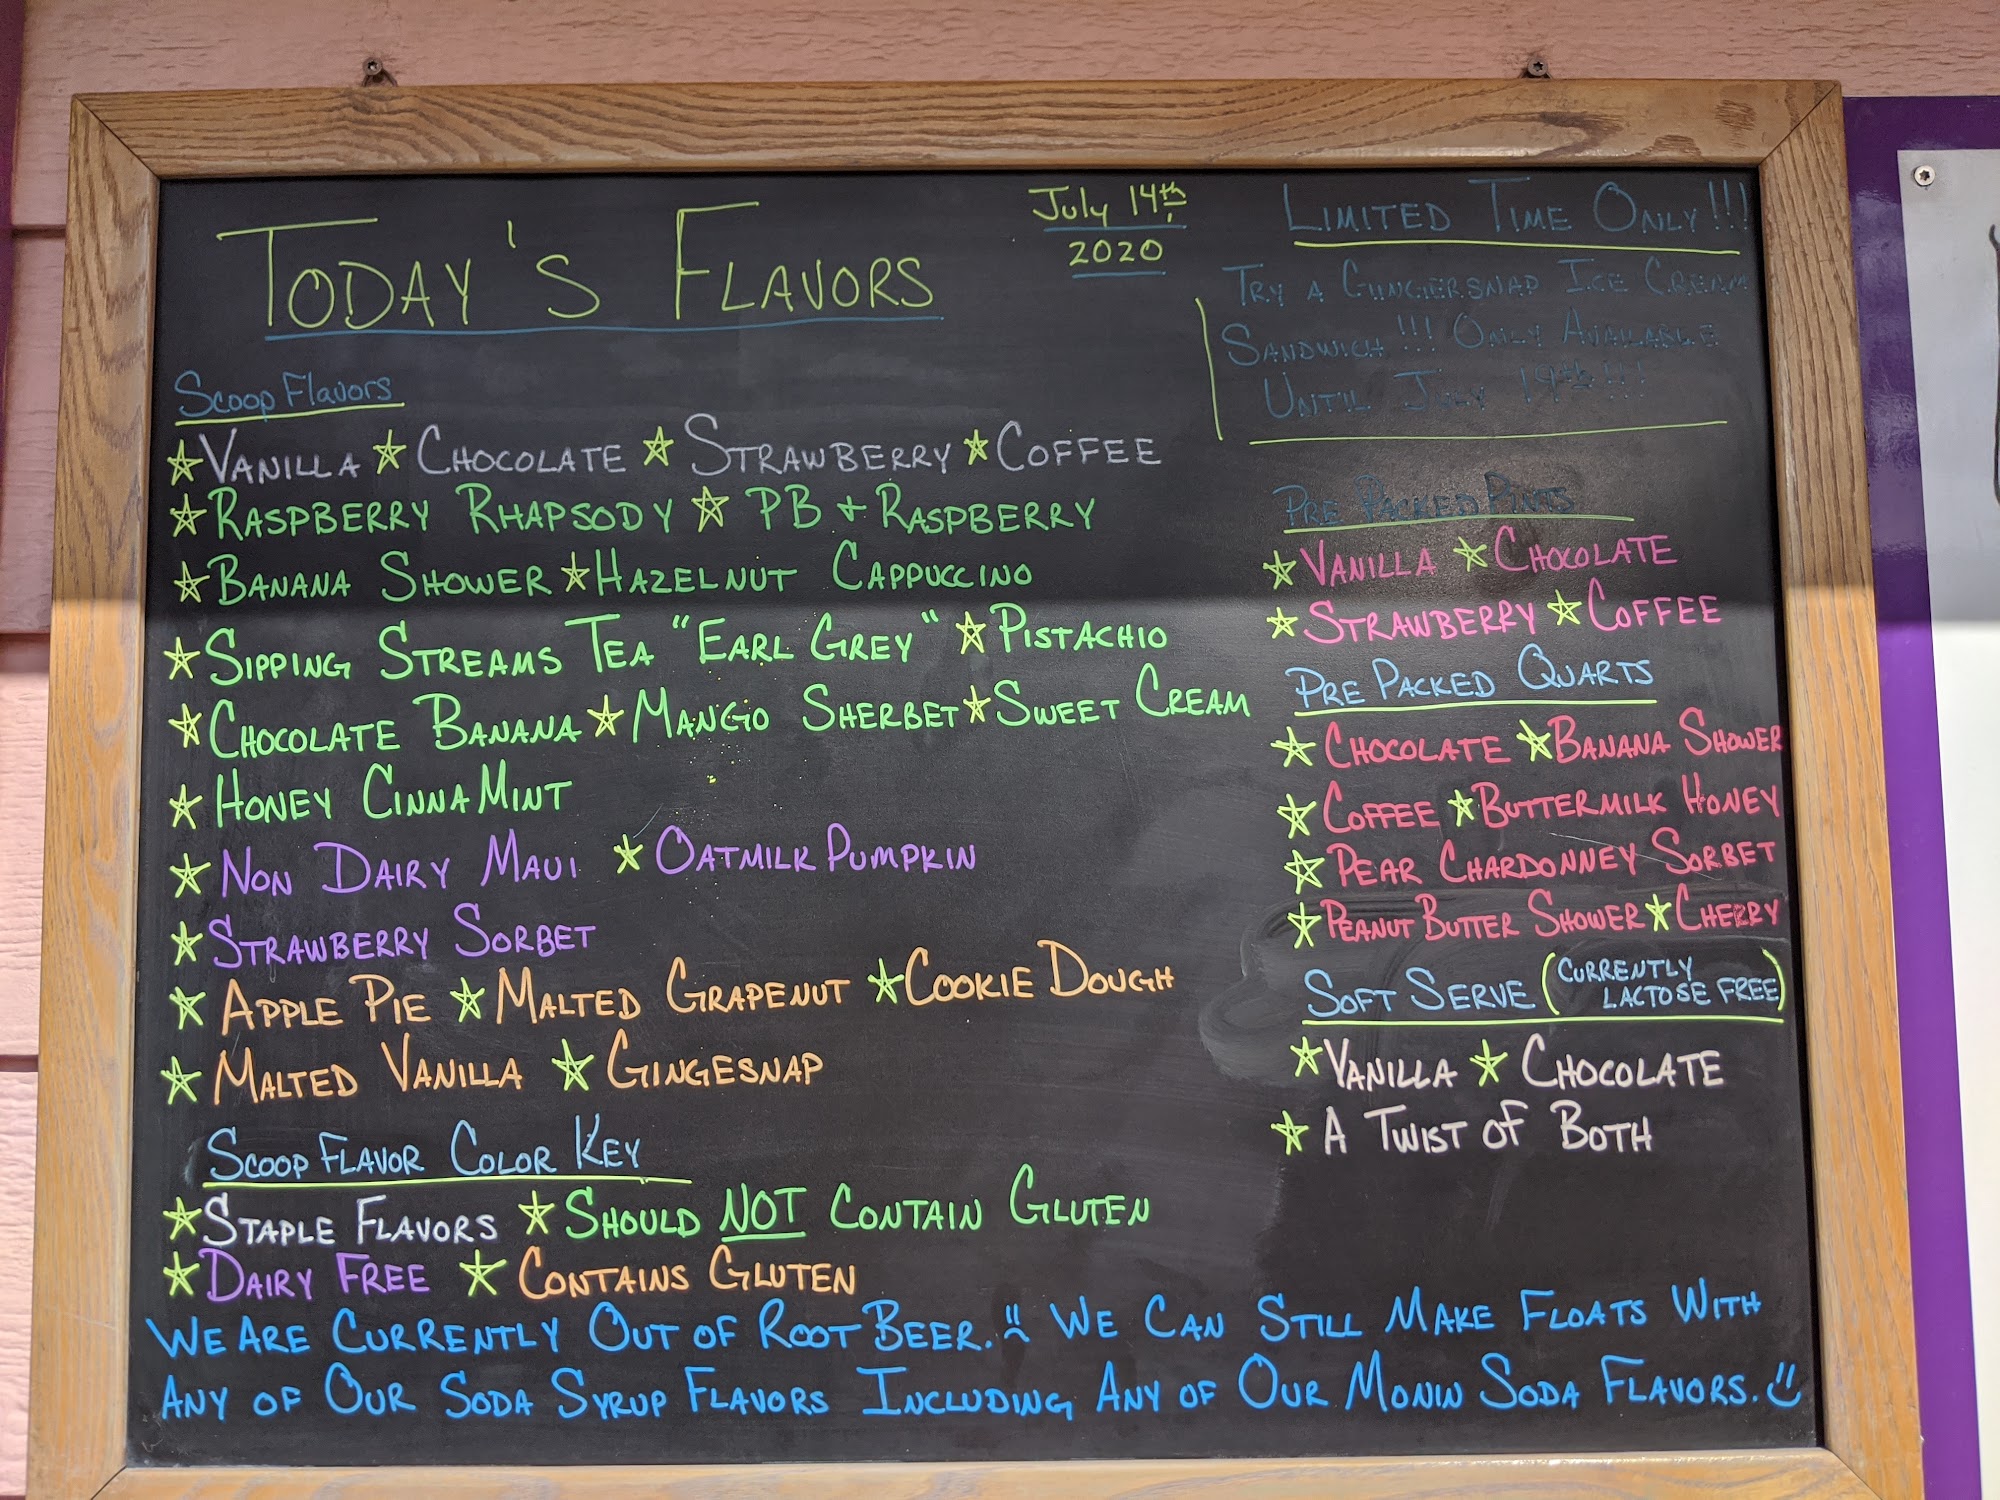 Today's Flavors
July 14th,
2020
Scoop Flavors
☆Vanilla ☆Chocolate ☆Strawberry ☆Coffee
☆Raspberry Rhapsody ☆ PB + Raspberry
☆Banana Shower ☆Hazelnut Cappuccino
☆Sipping Streams Tea "Earl Grey" ☆Pistachio
☆Chocolate Banana ☆Mango Sherbet ☆Sweet Cream
☆Honey CinnaMint
☆Non Dairy Maui ☆Oatmilk Pumpkin
☆Strawberry Sorbet
☆Apple Pie ☆Malted Grapenut ☆Cookie Dough
☆Malted Vanilla ☆Gingesnap
Scoop Flavor Color Key
☆Staple Flavors ☆Should NOT Contain Gluten
☆Dairy Free ☆Contains Gluten
Limited Time Only!!!
Try a Gingersnap Ice Cream
Sandwich!!! Only Available
Until July 19th!!!
Pre Packed Pints
☆Vanilla ☆Chocolate
☆Strawberry ☆Coffee
Pre Packed Quarts
☆Chocolate ☆Banana Shower
☆Coffee ☆Buttermilk Honey
☆Pear Chardonney Sorbet
☆Peanut Butter Shower ☆Cherry
Soft Serve (Currently
Lactose Free)
☆Vanilla ☆Chocolate
☆A Twist of Both
We Are Currently Out of Root Beer. :( We Can Still Make Floats With
Any of Our Soda Syrup Flavors Including Any of Our Monin Soda Flavors. :)